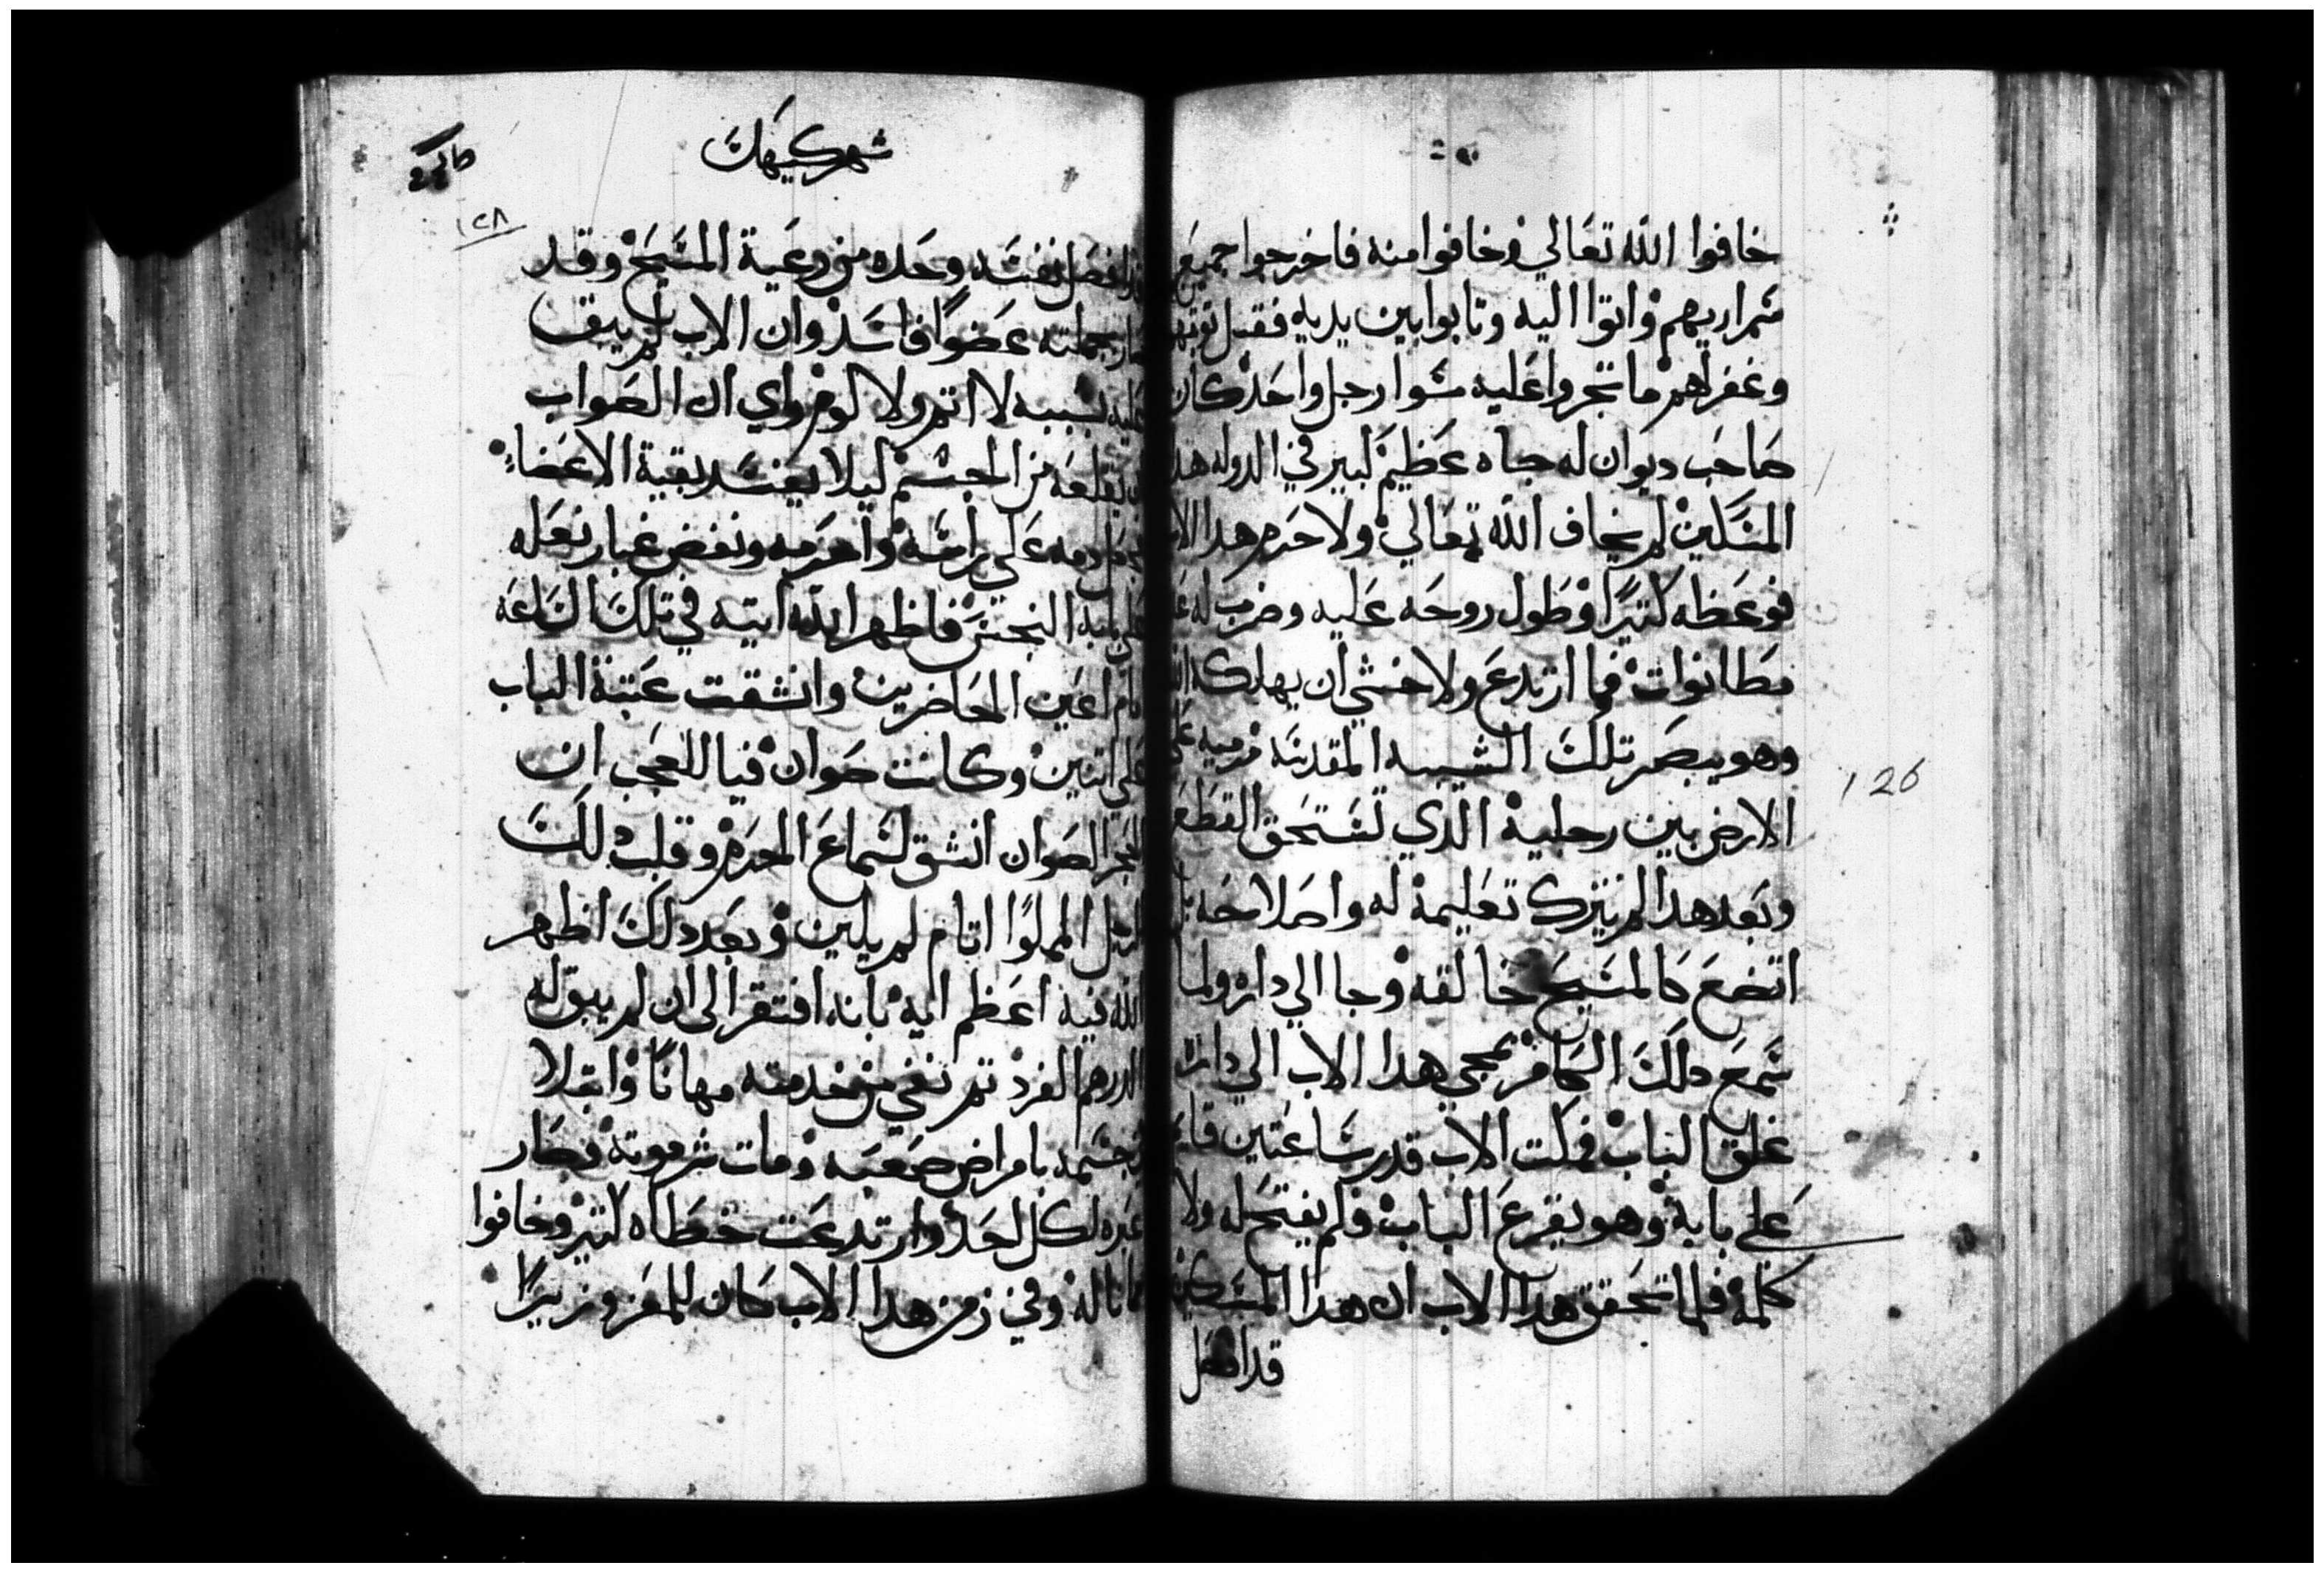 خافوا الله تعالي وخافوا منه فاخرجوا جميع
سراريهم واتوا اليه وتابوا بين يديه فقبل توبتهم
وغفر لهم ما تجروا عليه سوا رجل واحد كان
صاحب ديوان له جاه عظيم كبير في الدوله هدا
المسكين لم يخاف الله تعالي ولا حرم هدا الاب
فوعظه كتيرا وطول روحه عليه وضرب له
مطانوات فما ارتدع ولا خشي ان يهلكه الله
وهو يبصر تلك الشيبه المقدسه مرميه علي
الارض بين رجلية الدي تستحق القطع
وبعد هدا لم يترك تعليمة له واصلاحه بل
اتضع كالمسيح خالقه وجا الي داره ولما
سمع دلك الكافر بمجي هدا الاب الي داره
غلق الباب فمكت الاب قدر ساعتين قايم
علي بابة وهو يقرع الباب ولم يفتح له ولا
كلمة فلما تحقق هدا الاب ان هدا المسكين
قد افصل
126
شهر كيهك
١٢٨
قد افصل نفسه وحده من رعية المسيح وقد
صار بجملته عضوا فاسد وان الاب لم يبق
عليه بسببه لا اتم ولا لوم وراي ان الصواب
ان يقلعه من الجسم ليلا يفسد بقية الاعضاء
فجعل دمه علي راسه واحرمه ونفض غبار نعله
علي بابه النجس فاظهر الله ايته في تلك الساعه
امام اعين الحاضرين وانشقت عتبة الباب
علي اتنين وكانت صوان فيا للعجب ان
الحجر الصوان انشق لسماع الحرم وقلب دلك
الرجل المملوا اتام لم يلين وبعد دلك اظهر
الله فيه اعظم ايه بانه افتقر الى ان لم يبق له
الدرهم الفرد تم نفي من خدمته مهانا وابتلا
بجسمه بامراض صعبه ومات شر موتة وصار
عبره لكل احد وارتدعت خطاه كتير وخافوا
مما ناله وفي زمن هدا الاب كان للمعز وزيرا